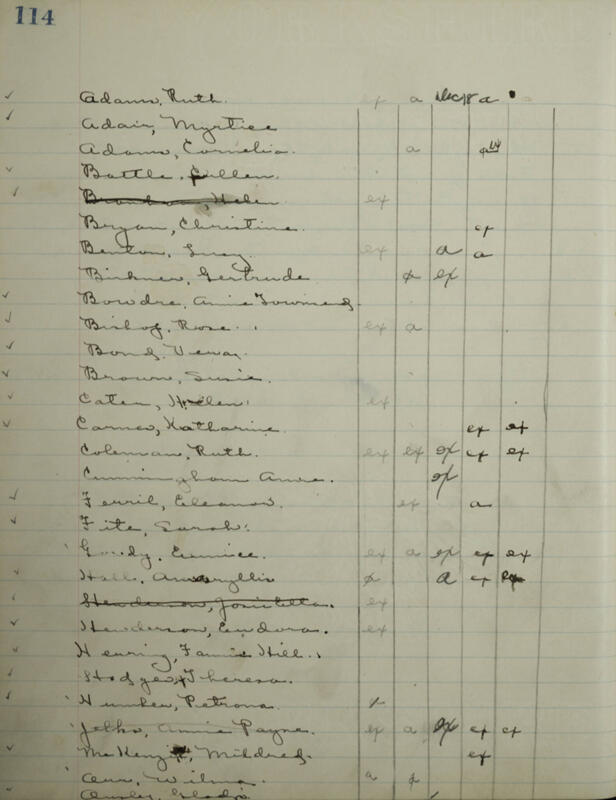 114
Adams, Ruth. ex a Dec 18 a
Adair, Myrtice
Adams, Cornelia. a a
Battle, Cullen.
Helen ex
Bryan, Christine. ex
Benton, Lucy. ex a a
Birkner, Gertrude a ex
Bowdre, Annie Townsend.
Bishop, Rose. ex a
Bond,
Brown, Susie.
Caten, Helen. ex
Carnes, Katharine ex ex
Coleman, Ruth. ex ex ex ex ex
Cunningham Anne. ex
Ferril, Eleanor. ex a
Fite, Sarah.
Goody, Eunice. ex a ex ex ex
Hall, Amaryllis a ex ex
Henderson, ex
Henderson, Eudora. ex
Herring, Fannie Hill.
Hodges, Theresa.
Petrona.
Jelks, Annie Payne. ex a ex ex ex
McKenzie, Mildred. ex
Wilma. a